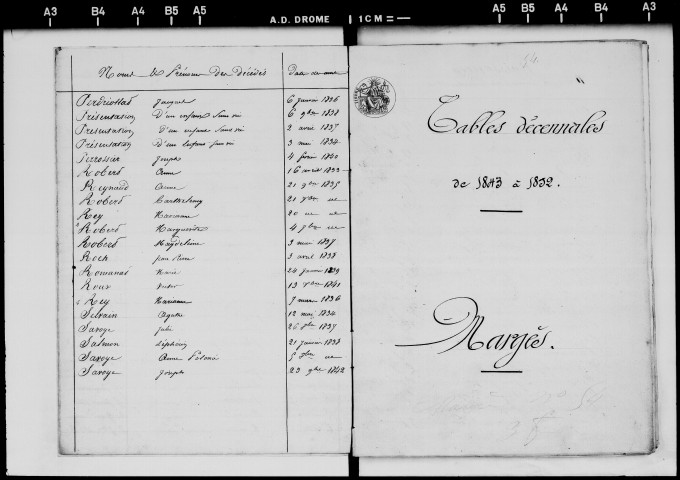 A3 B4 A4 B5 A5 A.D. DROME 1CM A5 B5 A4 B4 A3
Noms & Prénoms des décédés Date
Perdriollat Jacques 6 janvier 1836
Présentation D'un enfant sans vie 6 9bre 1838
Présentation D'un enfant sans vie 2 avril 1837
Présentation D'un enfant sans vie 3 mai 1834
Perrossier Joseph 4 1840
Robert Anne 16 avril 1833
Reynaud Anne 21 9bre 1835
Robert Barthelemy 21
Rey Marianne 20
Robert Marguerite 4
Robert Magdeleine 3 mai 1837
Roch Jean Pierre 3 avril 1838
Romanas Marie 24 janvier 1839
Roux Victor 13 1841
Rey Marianne 7 mars 1836
Selvain Agathe 12 mai 1834
Savoye Julie 26 1837
Salmon 21 janvier 1838
Savoye Anne 5
Savoye Joseph 23 9bre 1842
Tables décennales
de 1843 à 1852.
Margès.
A3 B4 A4 B5 A5 A5 B5 A4 B4 A3